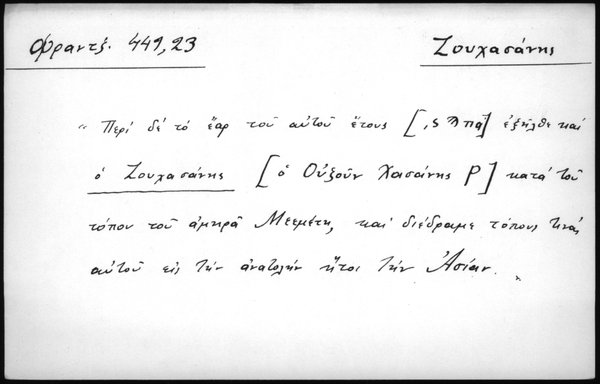 Φραντζ. 449,23
Ζουχασάνης
" Περί δέ τό ἔαρ τοῦ αὐτοῦ ἔτους [,ϛϠπα] ἐξῆλθε καί
ὁ Ζουχασάνης [ὁ Οὐζούν Χασάνης P] κατά τοῦ
τόπου τοῦ ἀμηρᾶ Μεεμέτη, καί διέδραμε τόπους τινάς
αὐτοῦ εἰς τήν ἀνατολήν ἤτοι τήν Ἀσίαν. "